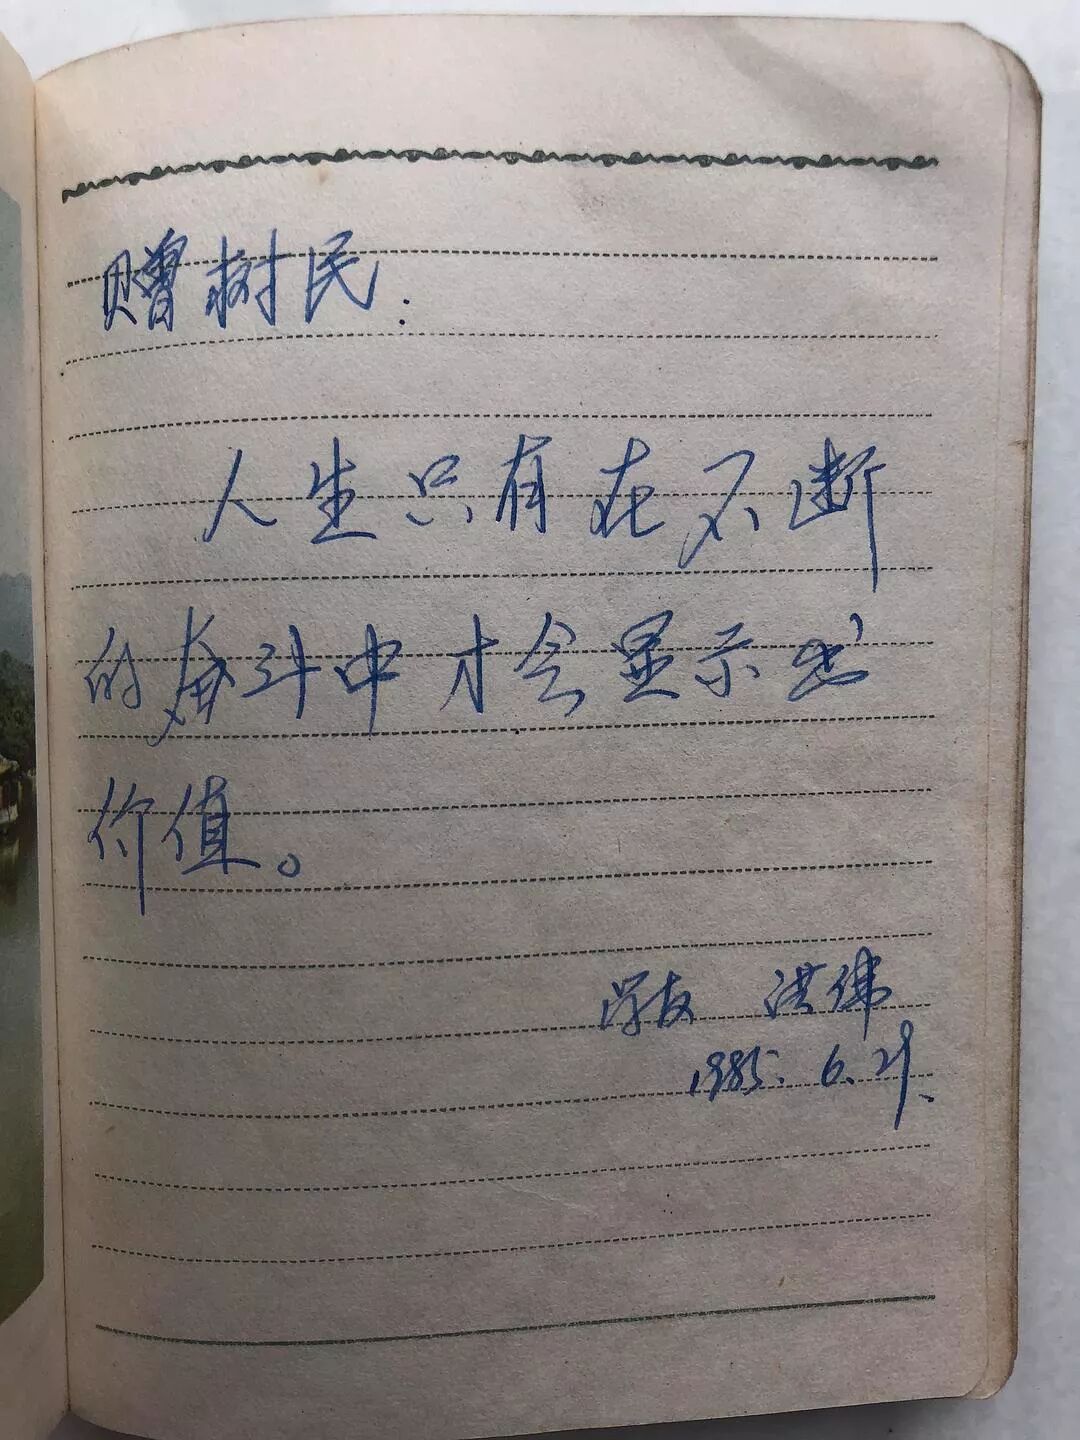 赠树民.
人生只有在不断
的奋斗中才会显示出
价值。
学友 洪佛
1985.6.29.